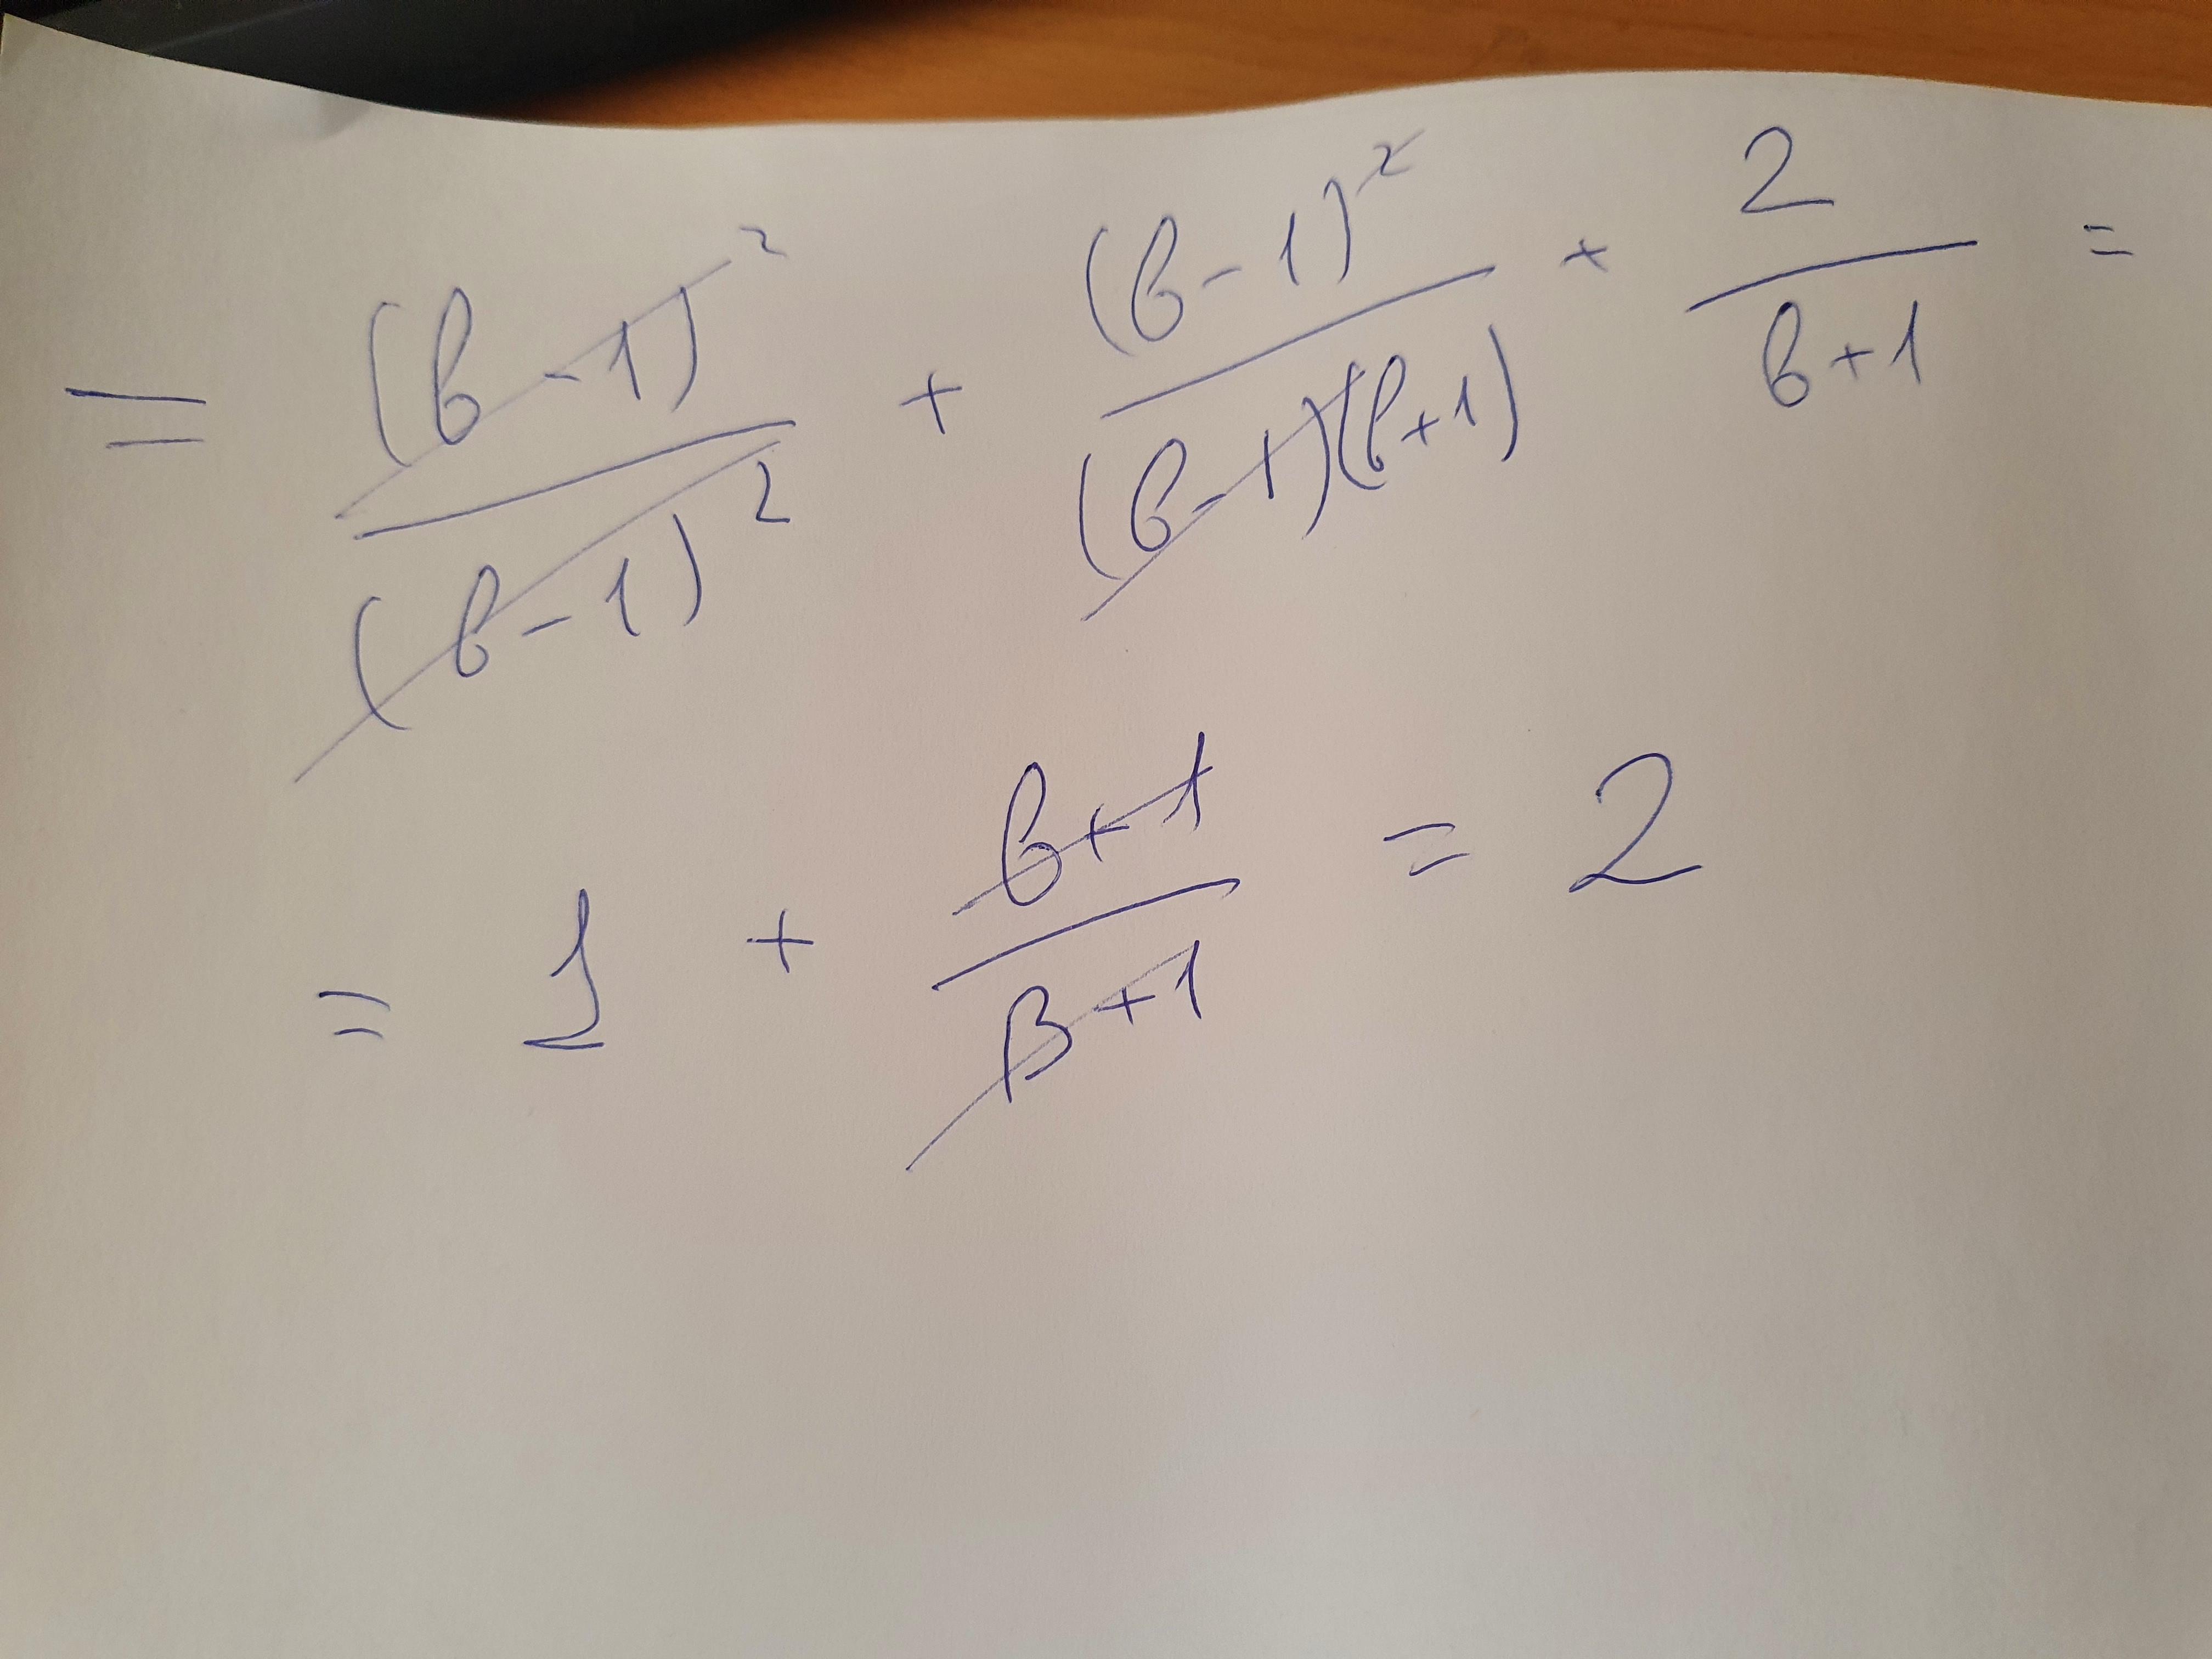 = (b-1)²/(b-1)² + (b-1)²/(b-1)(b+1) + 2/b+1 =
= 1 + b+1/b+1 = 2